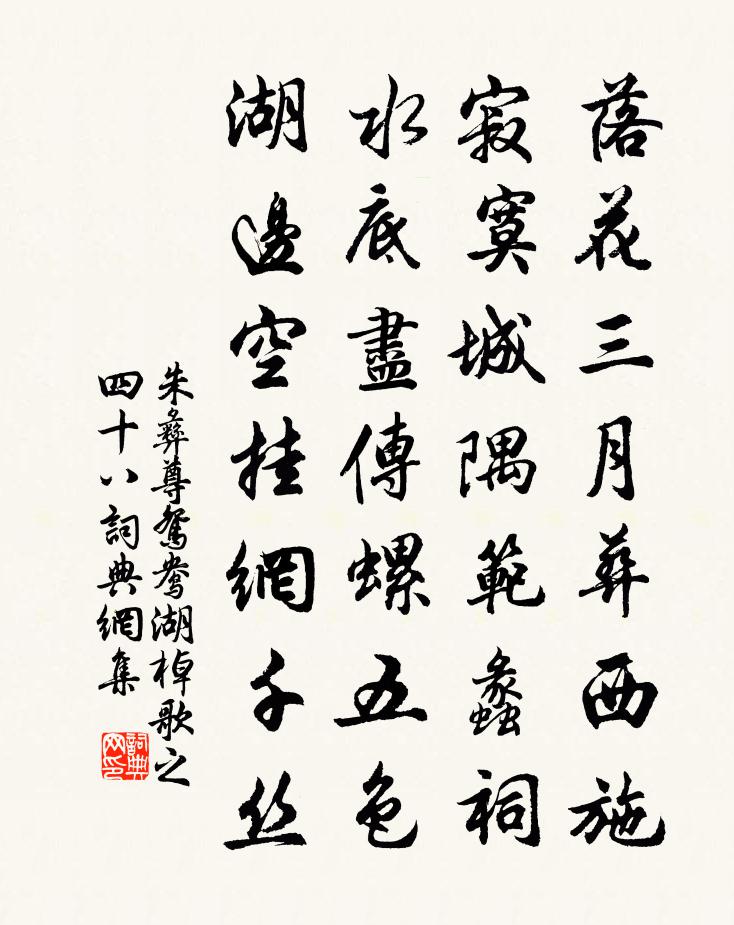 落花三月葬西施
寂寞城隅範蠡祠
水底盡傳螺五色
湖邊空挂網千丝
朱彝尊鴛鴦湖棹歌之
四十八詞典網集
詞典网印